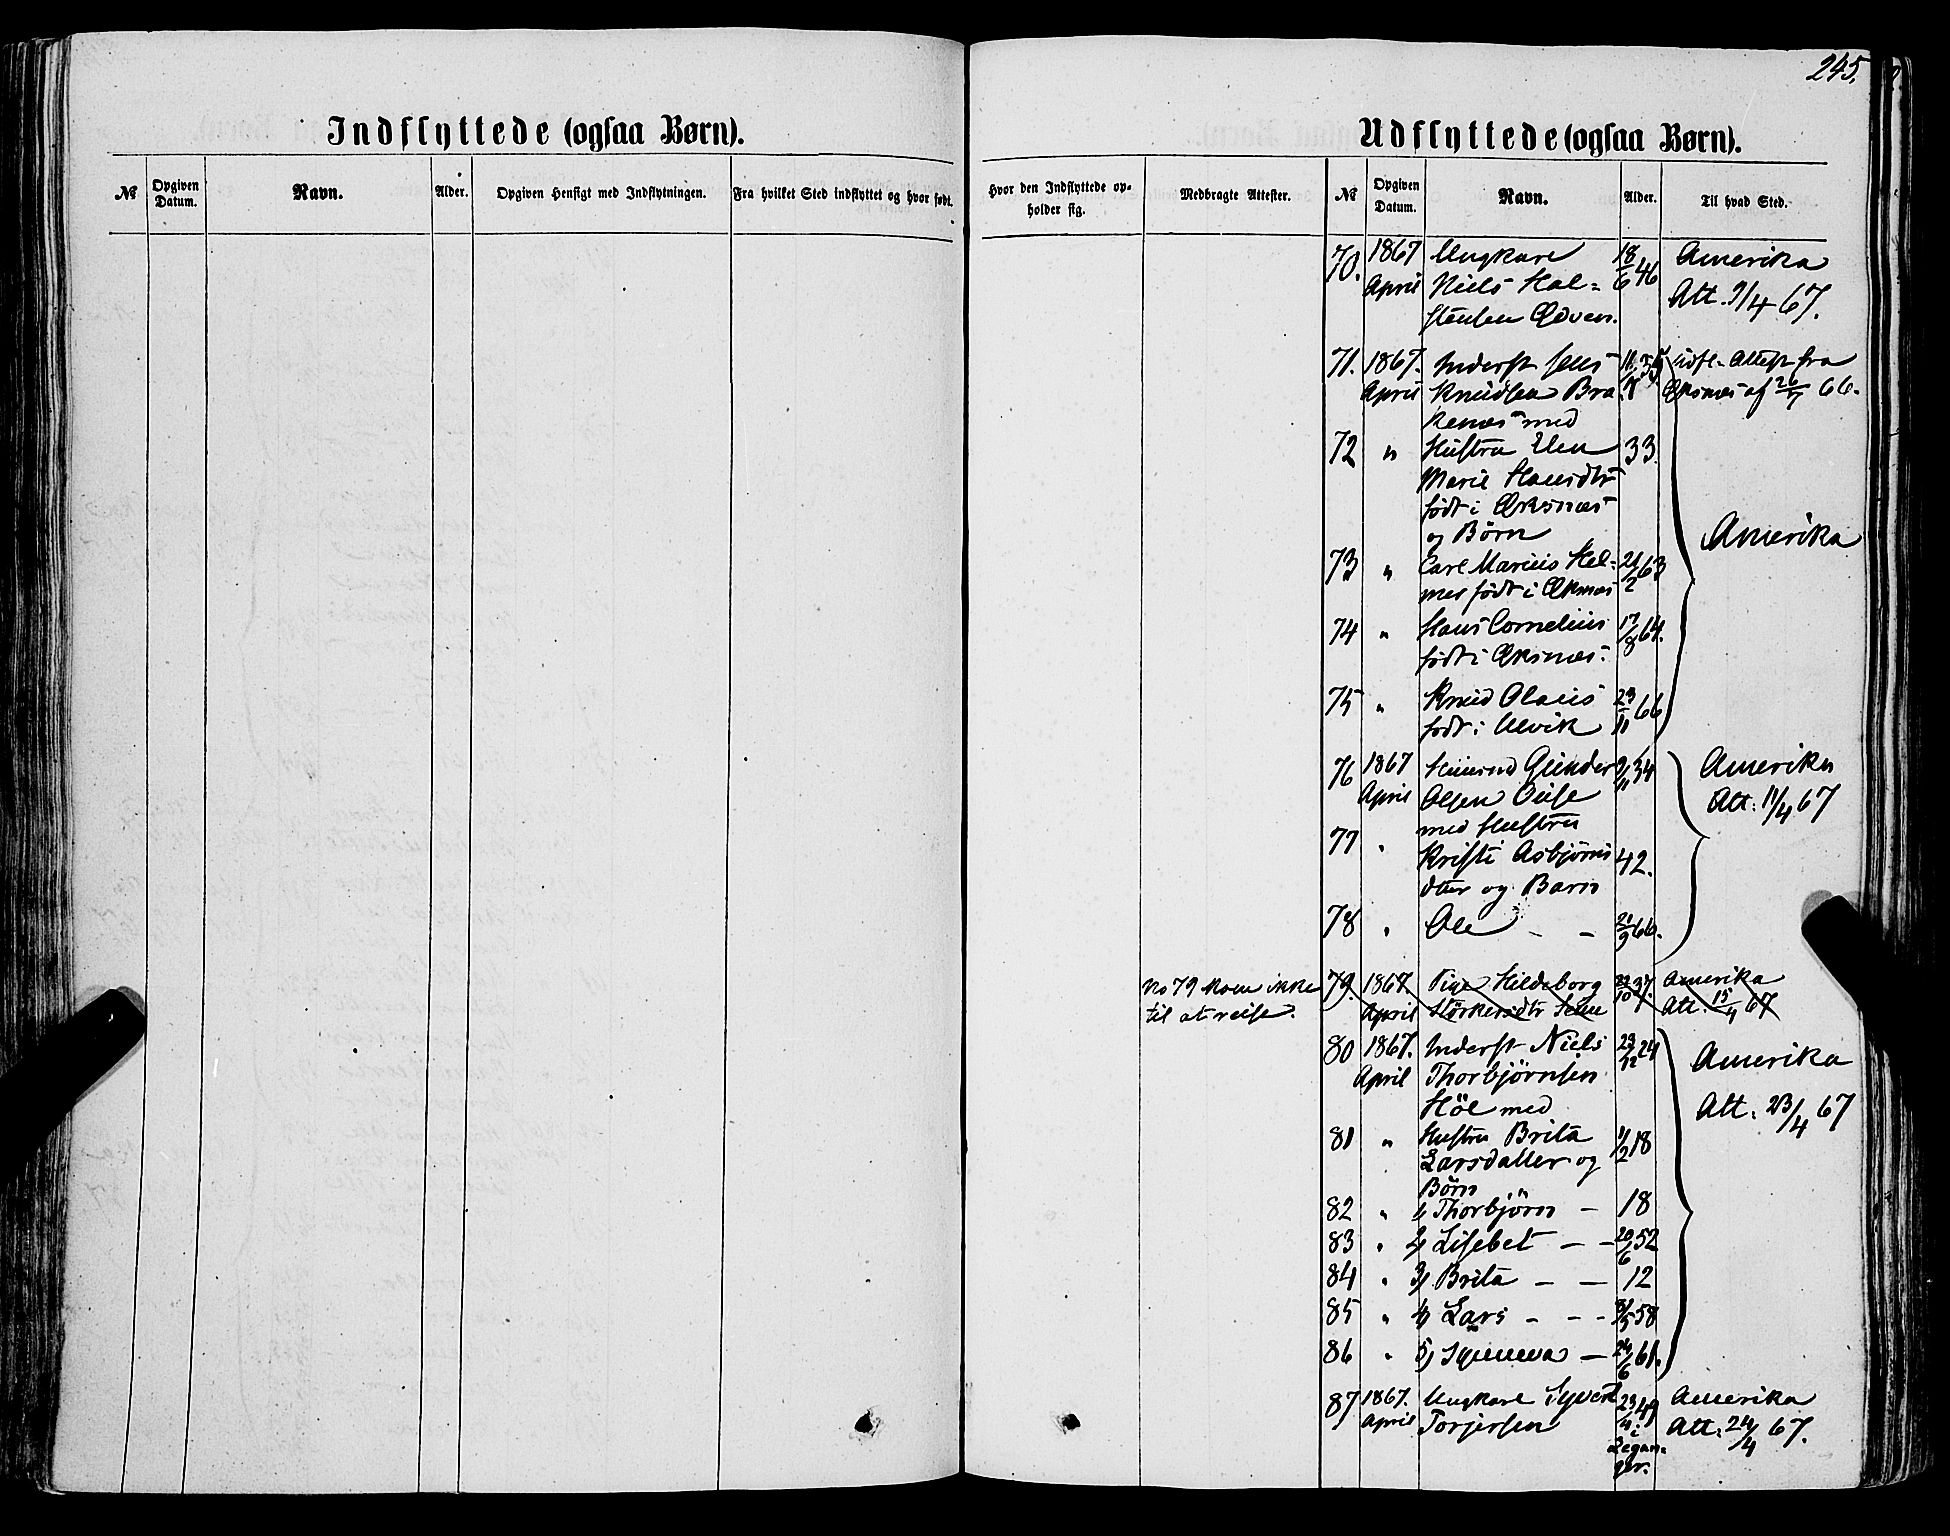 245.
Indflyttede (ogsaa Børn).
Udflyttede (ogsaa Børn).
№ Opgiven Datum. Navn. Alder. Opgiven Hensigt med Indflytningen. Fra hvilket Sted indflyttet og hvor født. Hvor den Indflyttede opholder sig. Medbragte Attester. № Opgiven Datum. Navn. Alder. Til hvad Sted.
70. 1867 Ungkare 18/6 46 Amerika
April Niels Hal= Att. 9/4 67.
stensen
71. 1867. Inderst Jens 35 udfl. Attest fra
April Knudsen Bra Øksnæs af 26/7 66.
kenæs med
72 " Hustru Elen 33
Marie Hansdtr
født i Øksnæs
og Børn
Amerika
73 " Carl Marius Hel= 21/2 63
mer født i Øksnæs
74 " Hans Cornelius 17/8 64.
født i Øksnæs.
75 " Knud Olaus 23/11 66
født i Ulvik
76 1867 Huusmd Gunder 9/11 34 Amerika
April Olsen Att: 11/4 67
77 " med Hustru
Kristi Asbjørns 42.
dtter og Barn
78 " Ole - - 21/9 66.
No 79 kom ikke 79. 1867. Pige Hildeborg 22/10 37. Amerika
til at reise. April Störkersdtr Att. 15/4 67
80 1867. Inderst Niels 23/12 24 Amerika
April Thorbjörnsen
Höl med Att: 23/4 67
81 " Hustru Brita 11/2 18
Larsdatter og
Börn
82 " 1, Thorbjörn - 18
83 " 2, Lisebet - - 20/6 52
84 " 3, Brita - - 12
85 " 4, Lars - - - 31/5 58
86 " 5, Synneva - 24/6 61.
87 1867. Ungkare Syvert 23/4 49 Amerika
April Torjersen i Att: 24/4 67.
Legan=
ger.